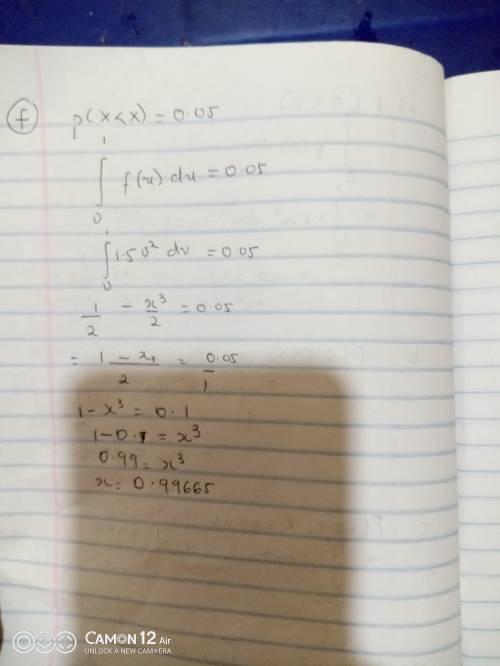 (f) p(x<x) = 0.05
∫₀¹ f(u) du = 0.05
∫₀¹ 1.5 u² du = 0.05
1/2 - x³/2 = 0.05
= 1 - x³/2 = 0.05/1
1 - x³ = 0.1
1 - 0.1 = x³
0.99 = x³
x = 0.99665
CAMON 12 Air
UNLOCK A NEW CAMERA